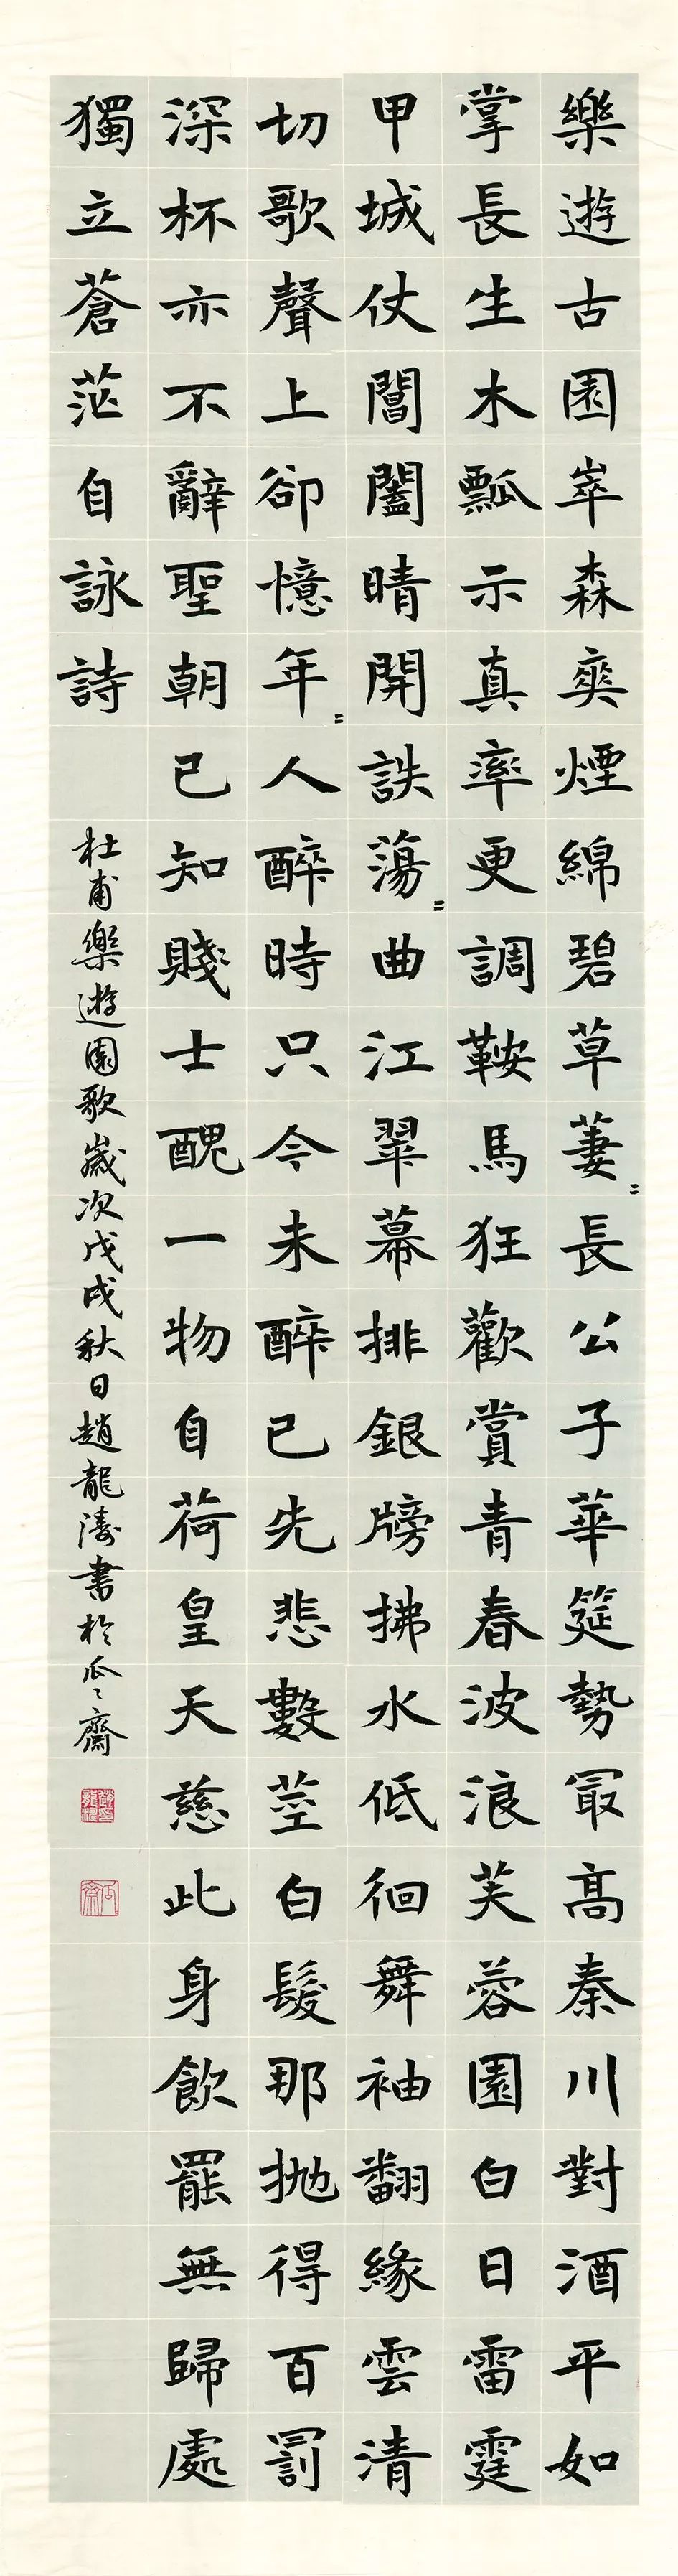 樂遊古園崒森爽煙綿碧草萋〻長公子華筵勢冣高秦川對酒平如
掌長生木瓢示真率更調鞍馬狂歡賞青春波浪芙蓉園白日雷霆
甲城仗閶闔晴開詄蕩〻曲江翠幕排銀牓拂水低徊舞袖翻緣雲清
切歌聲上卻憶年〻人醉時只今未醉已先悲數莖白髮那拋得百罰
深杯亦不辭聖朝已知賤士醜一物自荷皇天慈此身飲罷無歸處
獨立蒼茫自詠詩
杜甫樂遊園歌歲次戊戌秋日趙龍濤書於瓜〻齋